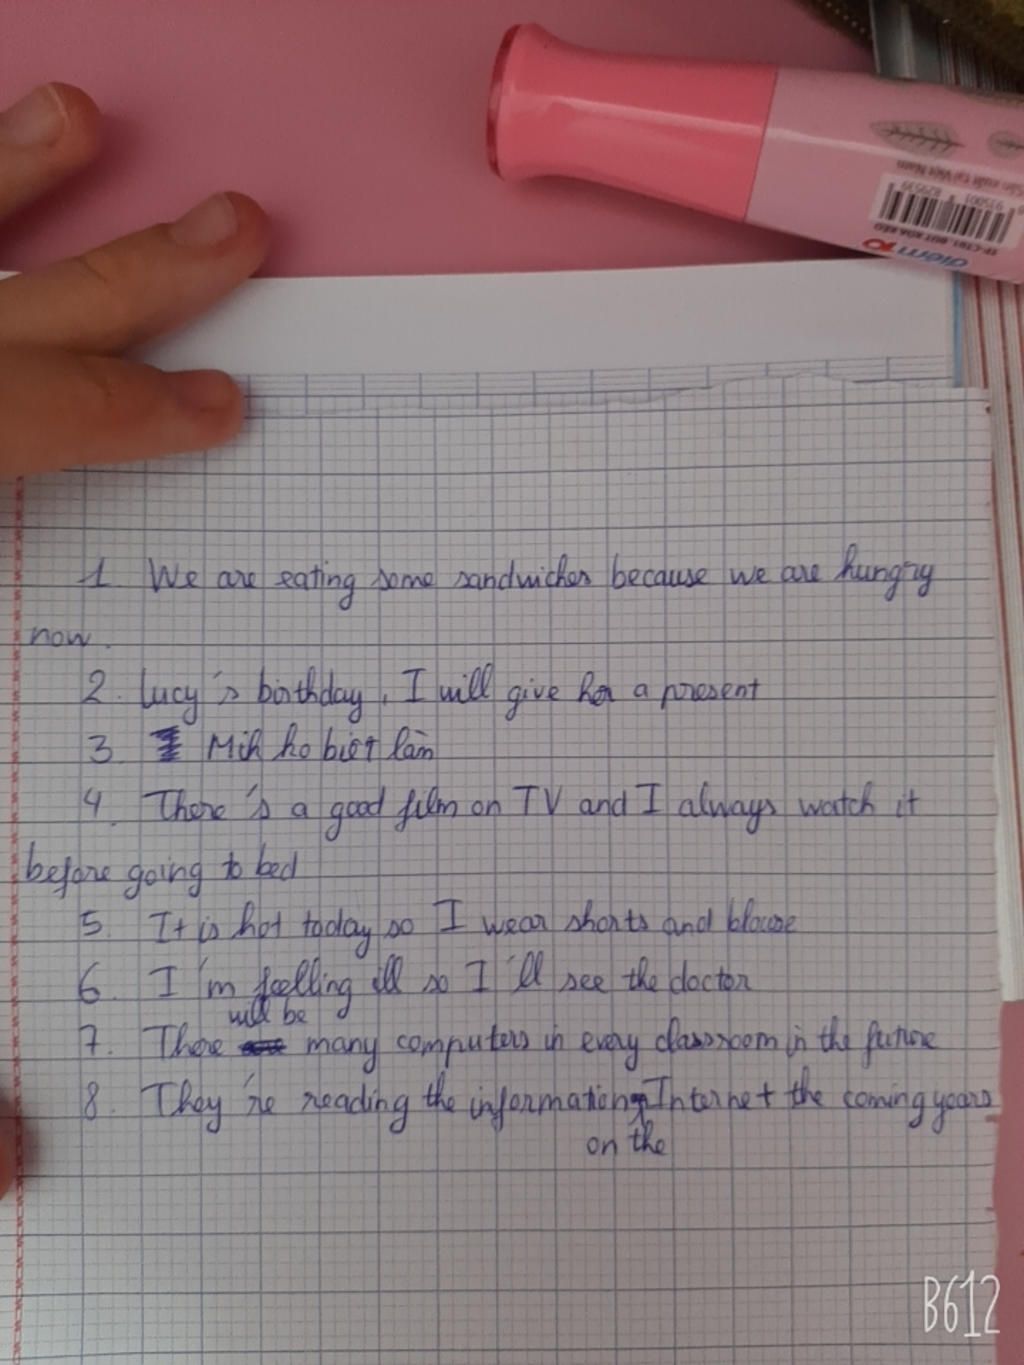 Sản xuất tại Việt Nam
TP-CT01-BÚT XÓA KÉO
điểm 10
1. We are eating some sandwiches because we are hungry
now.
2. Lucy's birthday, I will give her a present
3. Mih ko biết làm
4. There's a good film on TV and I always watch it
before going to bed
5. It is hot today so I wear shorts and blouse
6. I'm feelling ill so I'll see the doctor
will be
7. There many computers in every classroom in the future
8. They're reading the information Internet the coming years
on the
B612